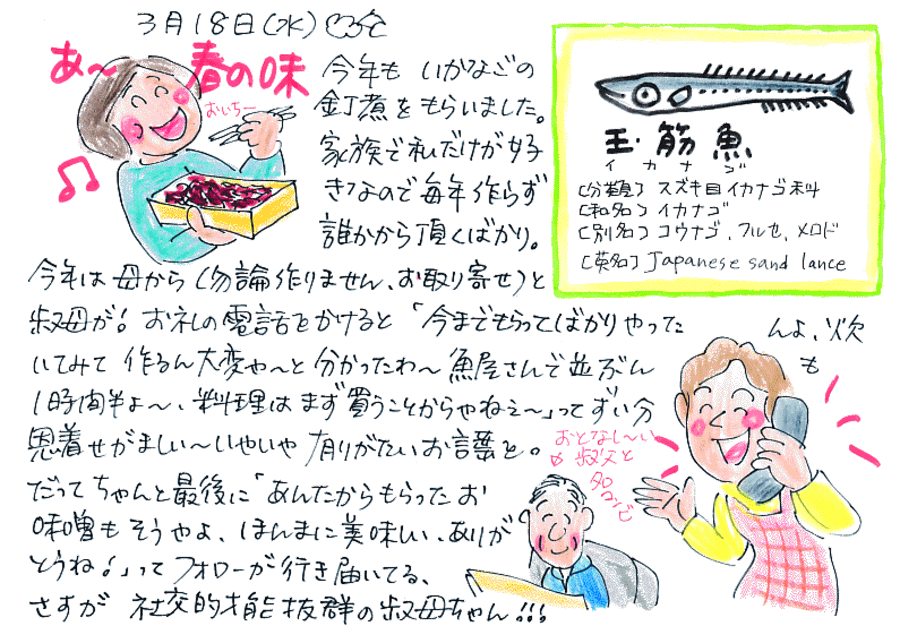 3月18日(水)
あ〜 春の味
おいちー
今年も いかなごの
釘煮をもらいました。
家族で私だけが好
きなので毎年作らず
誰かから頂くばかり。
玉・筋魚
イカナゴ
[分類] スズキ目イカナゴ科
[和名] イカナゴ
[別名] コウナゴ、フルセ、メロド
[英名] Japanese sand lance
今年は母から(勿論作りません、お取り寄せ)と
叔母が! お礼の電話をかけると「今までもらってばかりやった んよ、炊
いてみて 作るん大変や〜と分かったわ〜 魚屋さんで並ぶん も
1時間半よ〜、料理はまず買うことからやねぇ〜」ってずい分
恩着せがましい〜いやいや 有りがたいお言葉と。
だって ちゃんと最後に「あんたからもらったお
味噌もそうやよ、ほんまに美味しい、ありが
とうね!」って フォローが行き届いてる、
さすが 社交的才能抜群の叔母ちゃん!!!
おとなし〜い
叔父と
名コンビ